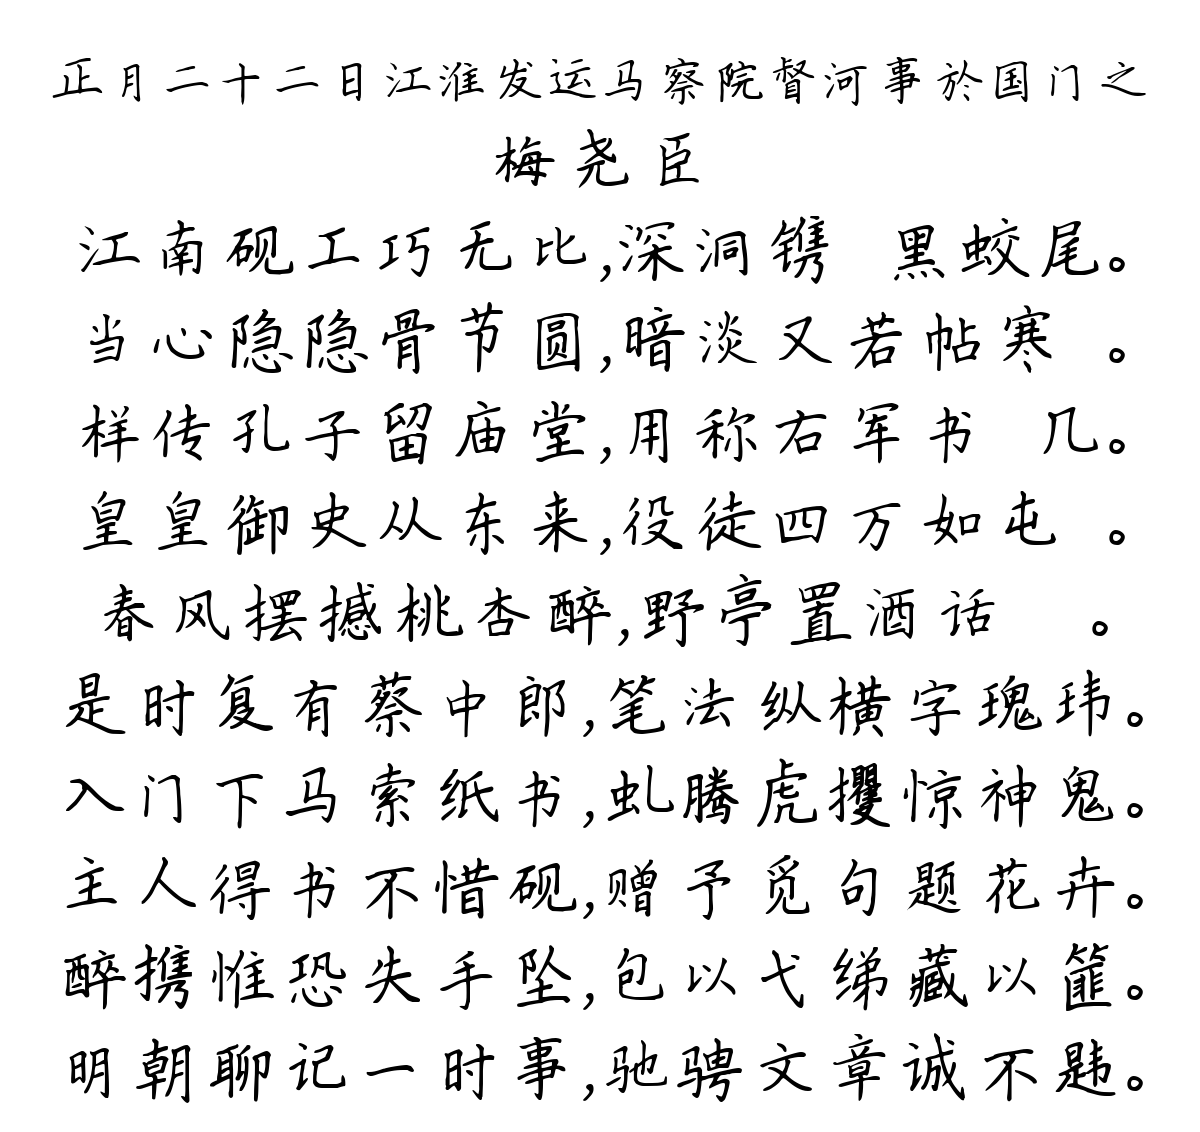 正月二十二日江淮发运马察院督河事於国门之
梅尧臣
江南砚工巧无比,深洞镌 黑蛟尾。
当心隐隐骨节圆,暗淡又若帖寒 。
样传孔子留庙堂,用称右军书 几。
皇皇御史从东来,役徒四万如屯 。
春风摆撼桃杏醉,野亭置酒话 。
是时复有蔡中郎,笔法纵横字瑰玮。
入门下马索纸书,虬腾虎攫惊神鬼。
主人得书不惜砚,赠予觅句题花卉。
醉携惟恐失手坠,包以弋绨藏以篚。
明朝聊记一时事,驰骋文章诚不韪。